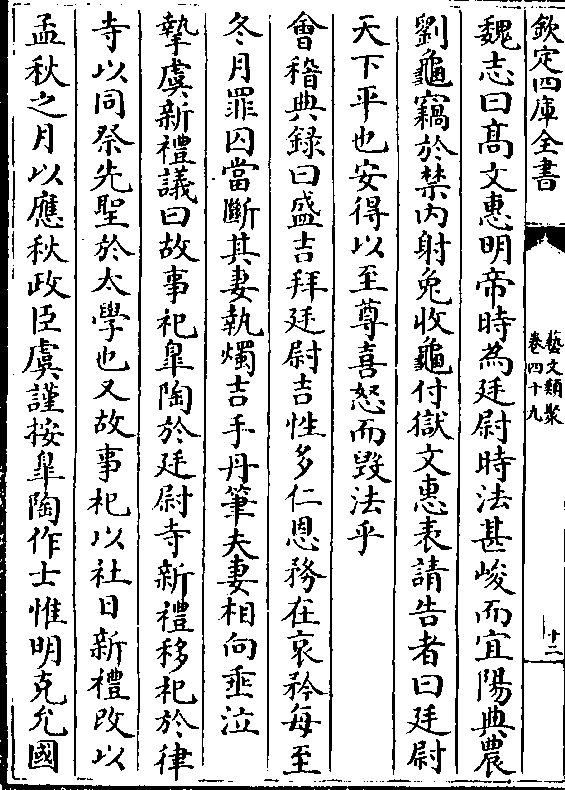 欽定四庫全書
藝文類聚
卷四十九
十二
魏志曰髙文惠明帝時為廷尉時法甚峻而宜陽典農
劉龜竊於禁内射兔收龜付獄文惠表請告者曰廷尉
天下平也安得以至尊喜怒而毁法乎
會稽典録曰盛吉拜廷尉吉性多仁恩務在哀矜每至
冬月罪囚當斷其妻執燭吉手丹筆夫妻相向垂泣
摯虞新禮議曰故事祀臯陶於廷尉寺新禮移祀於律
寺以同祭先聖於太學也又故事祀以社日新禮改以
孟秋之月以應秋政臣虞謹按臯陶作士惟明克允國